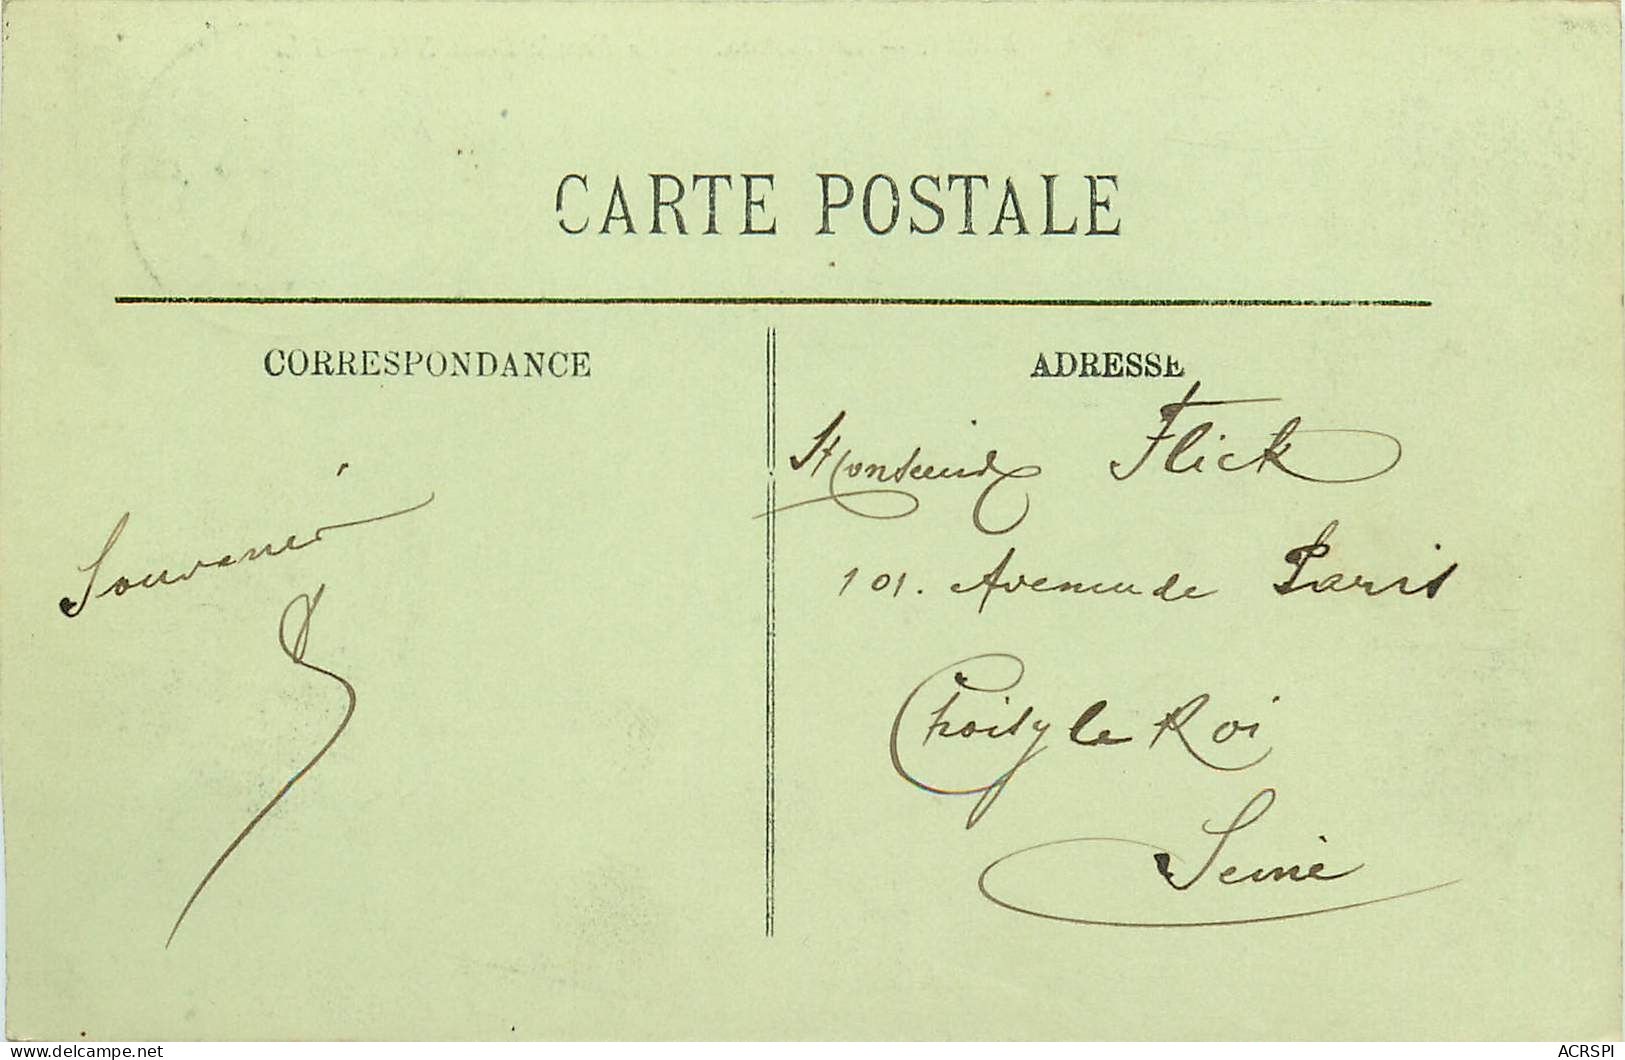 CARTE POSTALE
CORRESPONDANCE
Souvenir
ADRESSE
Monsieur Flick
101. Avenue de Paris
Choisy le Roi
Seine
delcampe.net
ACRSPI